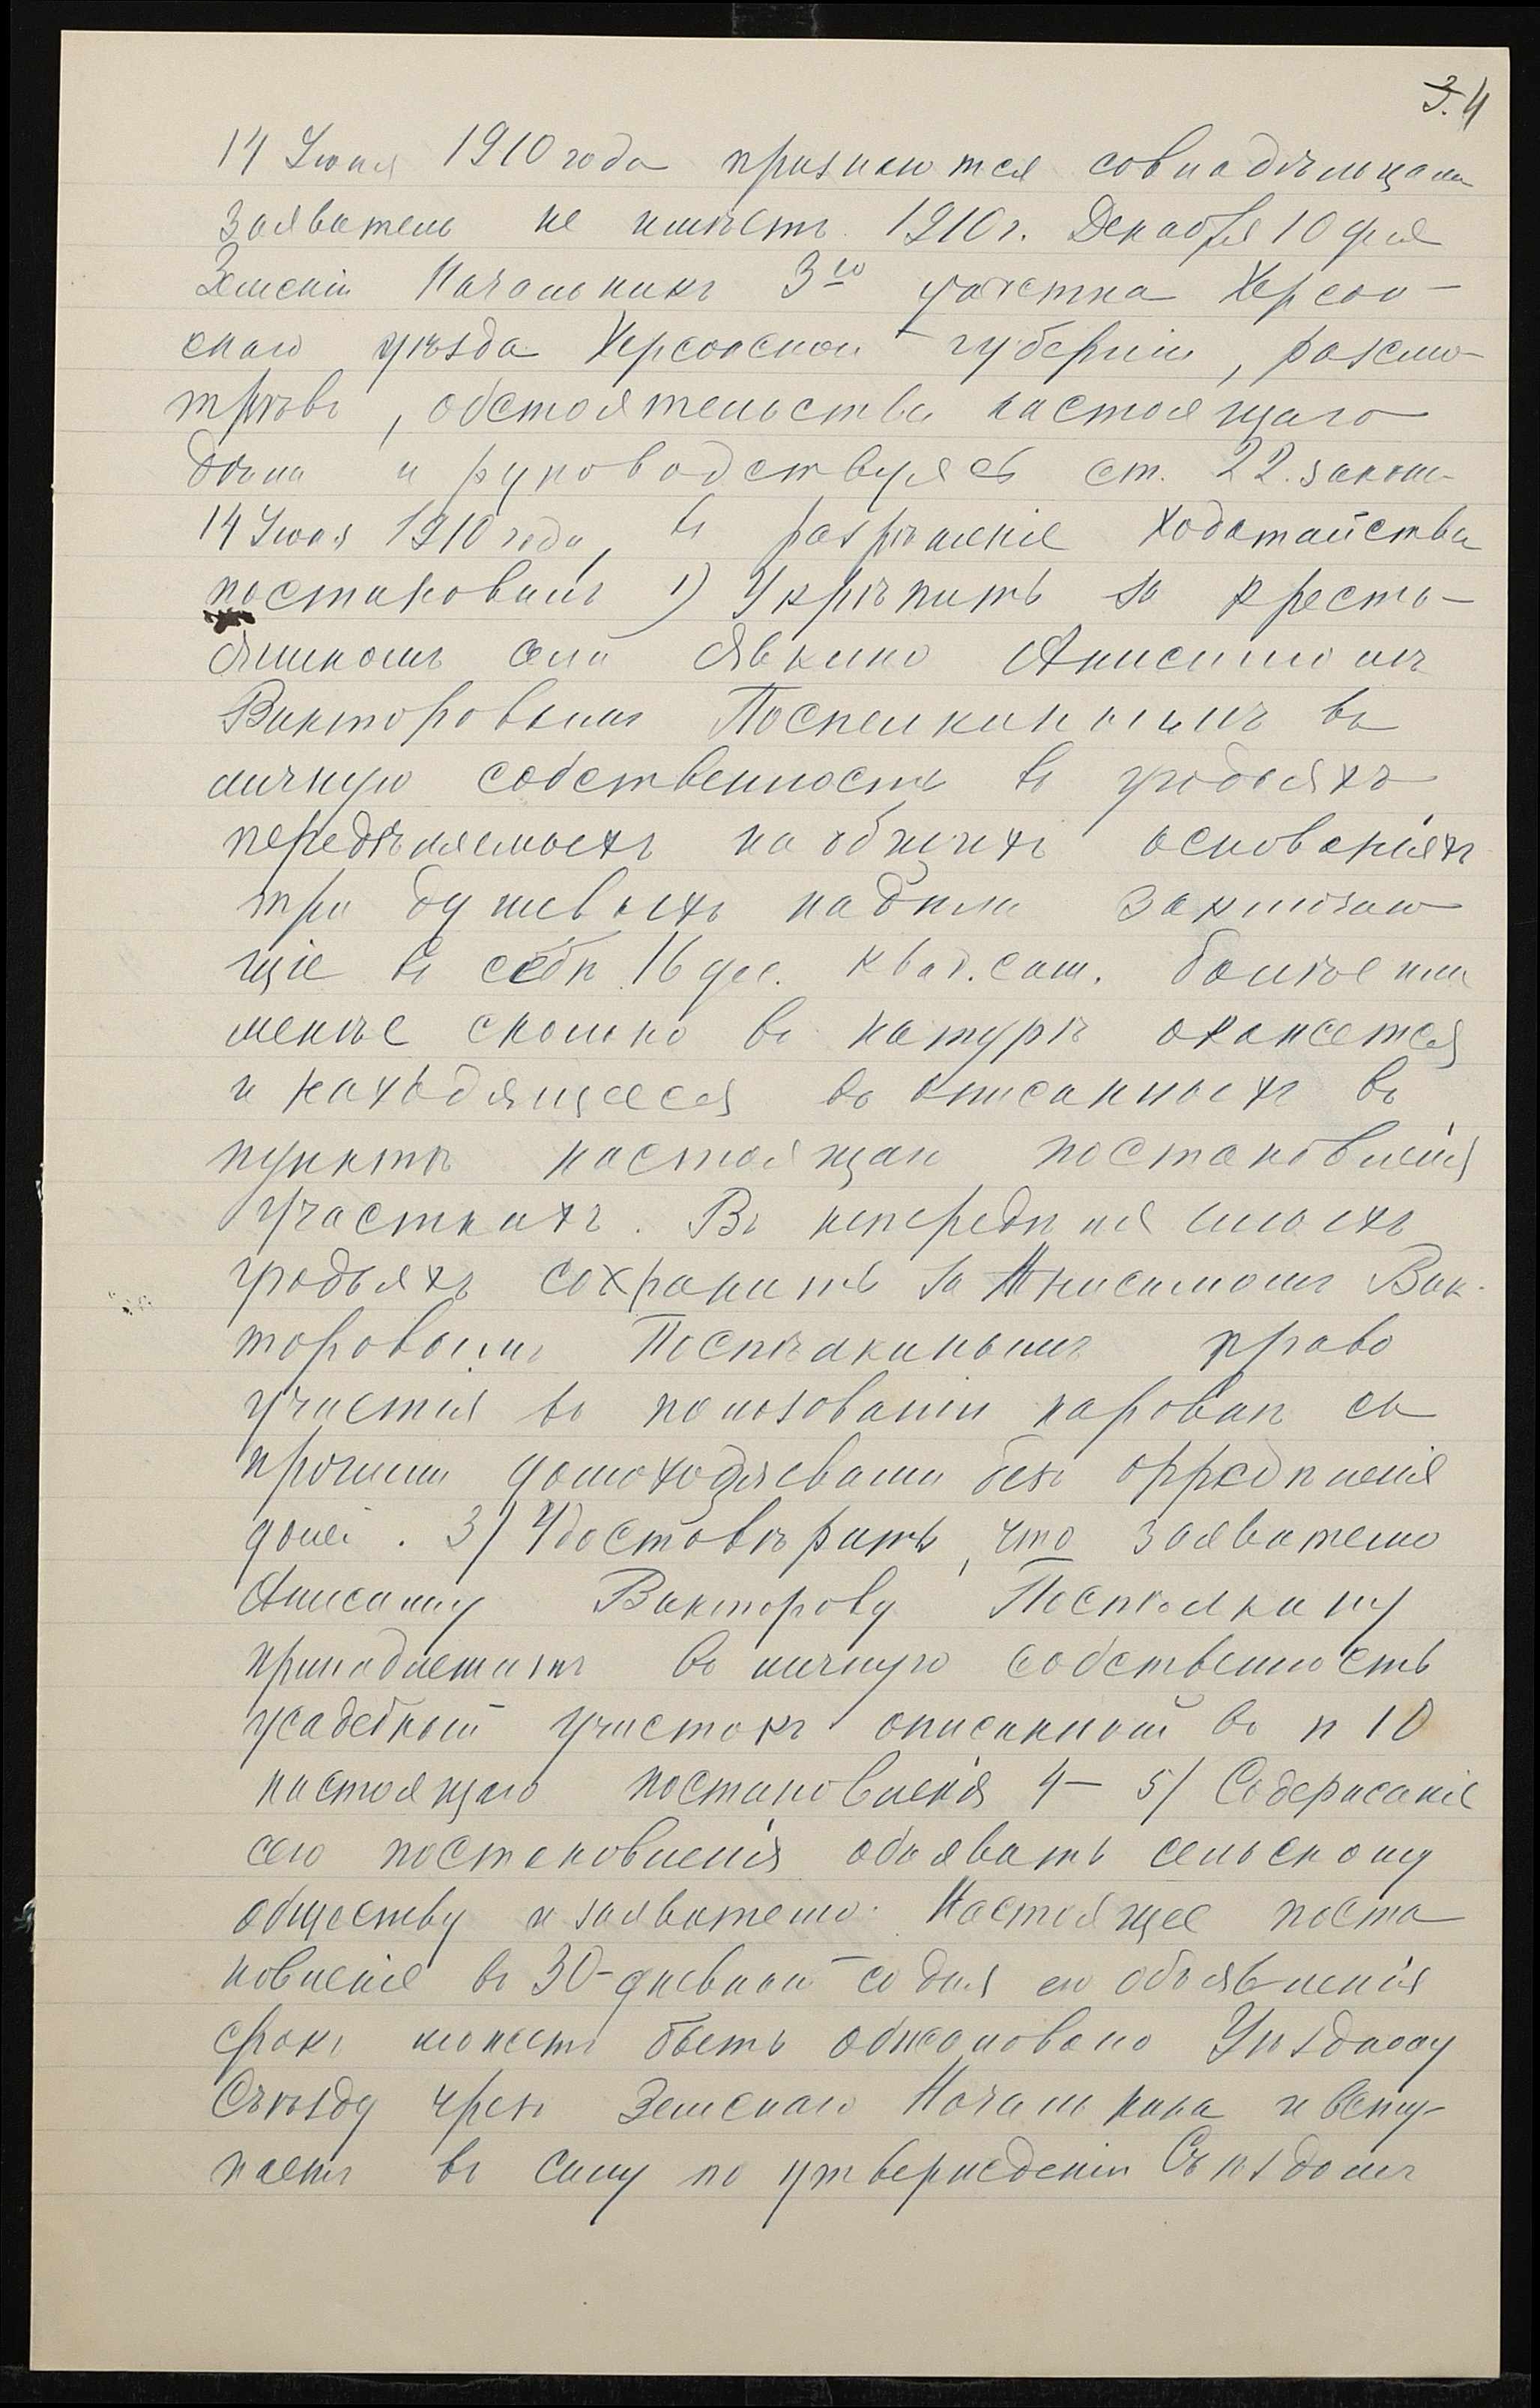 3. 4
14 Іюня 1910 года признаются совладѣльцами
заяватель не имѣетъ. 1910 г. Декабря 10 дня
Земскій Начальникъ 3го участка Херсон-
скаго уѣзда Херсонской губерніи, разсмо-
трѣвъ, обстоятельства настоящаго
дѣла и руководствуясь ст. 22. закона
14 Іюня 1910 года, въ разрѣшеніе ходатайства
постановилъ 1) Укрѣпить за кресть-
яниномъ села Явкино Анисимомъ
Викторовымъ Поспелкинымъ въ
личную собственность въ угодьяхъ
передѣляемыхъ на общихъ основаніяхъ
три душевыхъ надѣла заключаю
щіе въ себѣ 16 дес. квад. саж. болѣе или
менѣе сколько въ натурѣ окажется
и находящееся въ описанныхъ въ
пунктѣ настоящаго постановленія
участкахъ. Въ непередѣляемыхъ
угодьяхъ сохранить за Анисимомъ Вик-
торовымъ Поспѣлкинымъ право
участія въ пользованіи наровнѣ съ
прочими домохозяевами безъ опредѣленія
долей. 3) Удостовѣрить, что заявателю
Анисиму Викторову Поспѣлкину
принадлежитъ въ личную собственность
усадебный участокъ описанный въ п 10
настоящаго постановленія 4 – 5) Содержаніе
сего постановленія объявить сельскому
обществу и заявателю. Настоящее поста
новленіе въ 30-дневный со дня его объявленія
срокъ можетъ быть обжаловано Уѣздному
Съѣзду чрезъ Земскаго Начальника и всту-
паетъ въ силу по утвержденіи Съѣздомъ